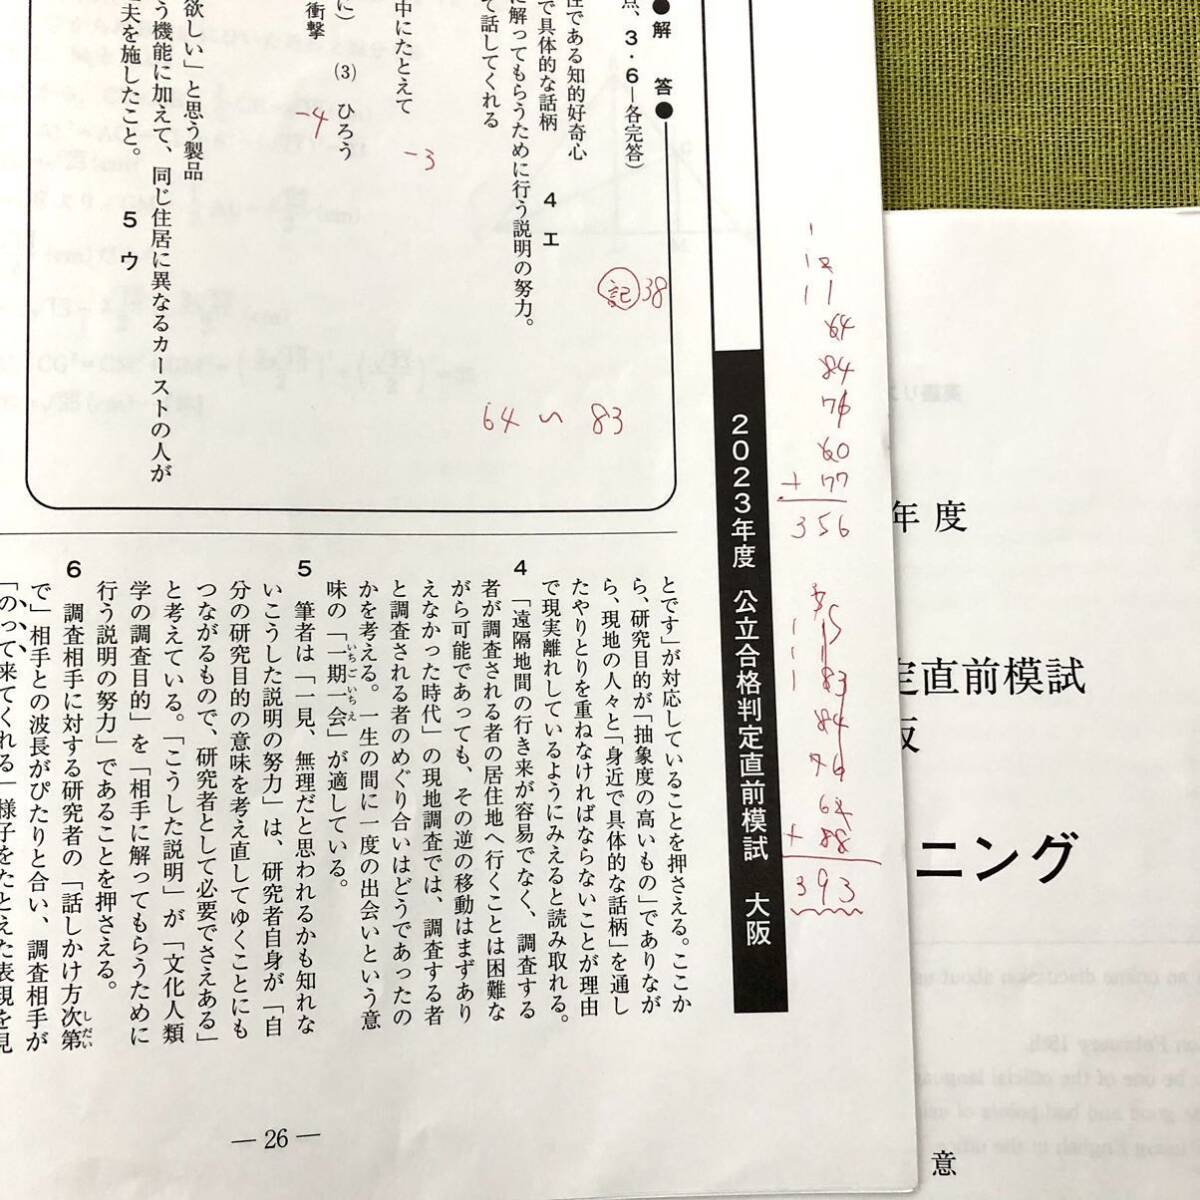 ●解 答●
点、3・6―各完答)
性である知的好奇心
で具体的な話柄 4 エ
に解ってもらうために行う説明の努力。
て話してくれる
中にたとえて
に) (3) ひろう
衝撃
欲しい」と思う製品
う機能に加えて、同じ住居に異なるカーストの人が
夫を施したこと。 5 ウ
-4
-3
記 38
64 〜 83
2023年度 公立合格判定直前模試 大阪
64
84
76
60
+ 77
356
83
84
+ 88
393
とです」が対応していることを押さえる。ここか
ら、研究目的が「抽象度の高いもの」でありなが
ら、現地の人々と「身近で具体的な話柄」を通し
たやりとりを重ねなければならないことが理由
で現実離れしているようにみえると読み取れる。
4 「遠隔地間の行き来が容易でなく、調査する
者が調査される者の居住地へ行くことは困難な
がら可能であっても、その逆の移動はまずあり
えなかった時代」の現地調査では、調査する者
と調査される者のめぐり合いはどうであったの
かを考える。一生の間に一度の出会いという意
味の「一期一会」が適している。
いちごいちえ
5 筆者は「一見、無理だと思われるかも知れな
いこうした説明の努力」は、研究者自身が「自
分の研究目的の意味を考え直してゆくことにも
つながるもので、研究者として必要でさえある」
と考えている。「こうした説明」が「文化人類
学の調査目的」を「相手に解ってもらうために
行う説明の努力」であることを押さえる。
6 調査相手に対する研究者の「話しかけ方次第
しだい
で」相手との波長がぴたりと合い、調査相手が
「のって来てくれる」様子をたとえた表現を見
― 26 ―
年度
定直前模試
ニング
意